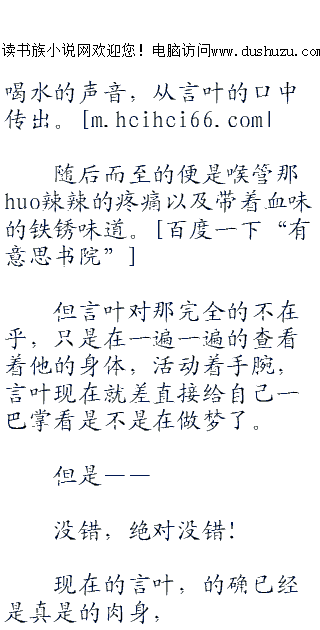 读书族小说网欢迎您！电脑访问www.dushuzu.com
喝水的声音，从言叶的口中
传出。[m.hcihci66.com|
随后而至的便是喉管那
huo辣辣的疼痛以及带着血味
的铁锈味道。[百度一下“有
意思书院”]
但言叶对那完全的不在
乎，只是在一遍一遍的查看
着他的身体，活动着手腕，
言叶现在就差直接给自己一
巴掌看是不是在做梦了。
但是——
没错，绝对没错！
现在的言叶，的确已经
是真是的肉身，